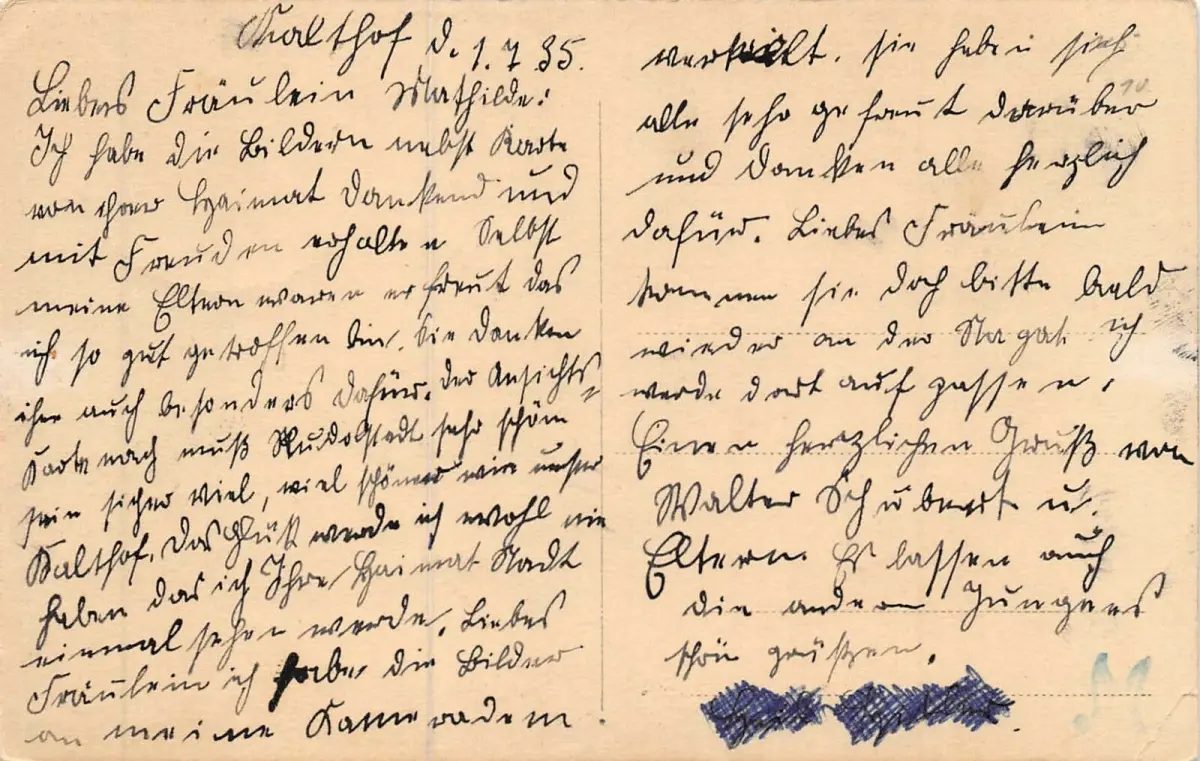 Kalthof d. 1.7.35.
Liebes Fräulein Mathilde!
Ich habe die Bildern nebst Karte
von ihrer Haimat dankend und
mit Freuden erhalten Selbst
meine Eltern waren erfreut das
ich so gut getroffen bin. Sie danken
ihn auch besonders dafür. Der Ansichts-
Karte nach muß Rudolstadt sehr schön
sein sicher viel, viel schöner wie unser
Kalthof. Das Glük werde ich wohl nie
haben das ich Ihre Haimat Stadt
einmal sehen werde. Liebes
Fräulein ich habe die Bilder
an meine Kameraden
verteilt. sie haben sich
alle sehr gefreut darüber
und danken alle herzlich
dafür. Liebes Fräulein
kommen sie doch bitte bald
wieder an der Nagat ich
werde dort auf passen.
Einen herzlichen Gruß von
Walter Schubert u.
Eltern Es lassen auch
die andern Jungens
schön grüßen.
Heil Hitler.